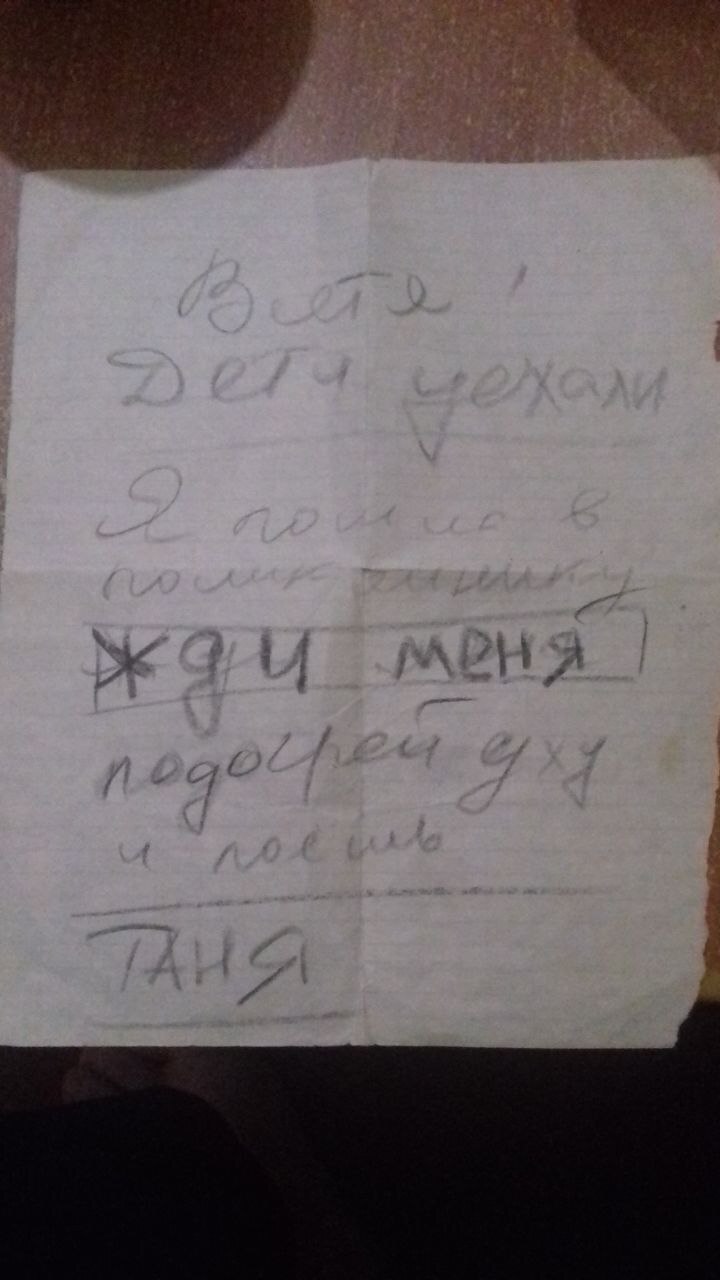 Витя!
Дети уехали
Я пошла в
поликлинику
Жди меня
подогрей уху
и поешь
ТАНЯ